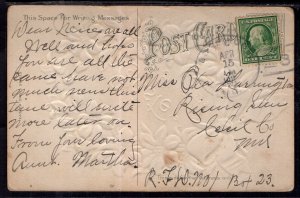 This Space For Writing Messages
POST CARD
Dear Niece are all
Well and hope
you are all the
same have not
much news this
time will write
more later on.
From your loving
Aunt. Martha.
APR
15
Miss Ora Harrington
Rising Sun
Cecil Co
Md
R.F.D. No 1 Box 23.